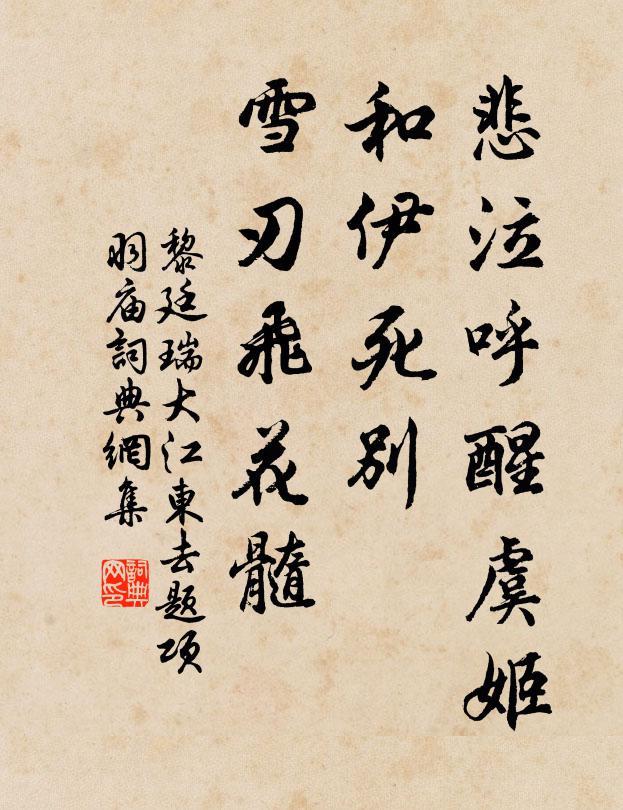 悲泣呼醒虞姬
和伊死别
雪刃飛花髓
黎廷瑞大江東去題項
羽庙詞典網集
詞典网印